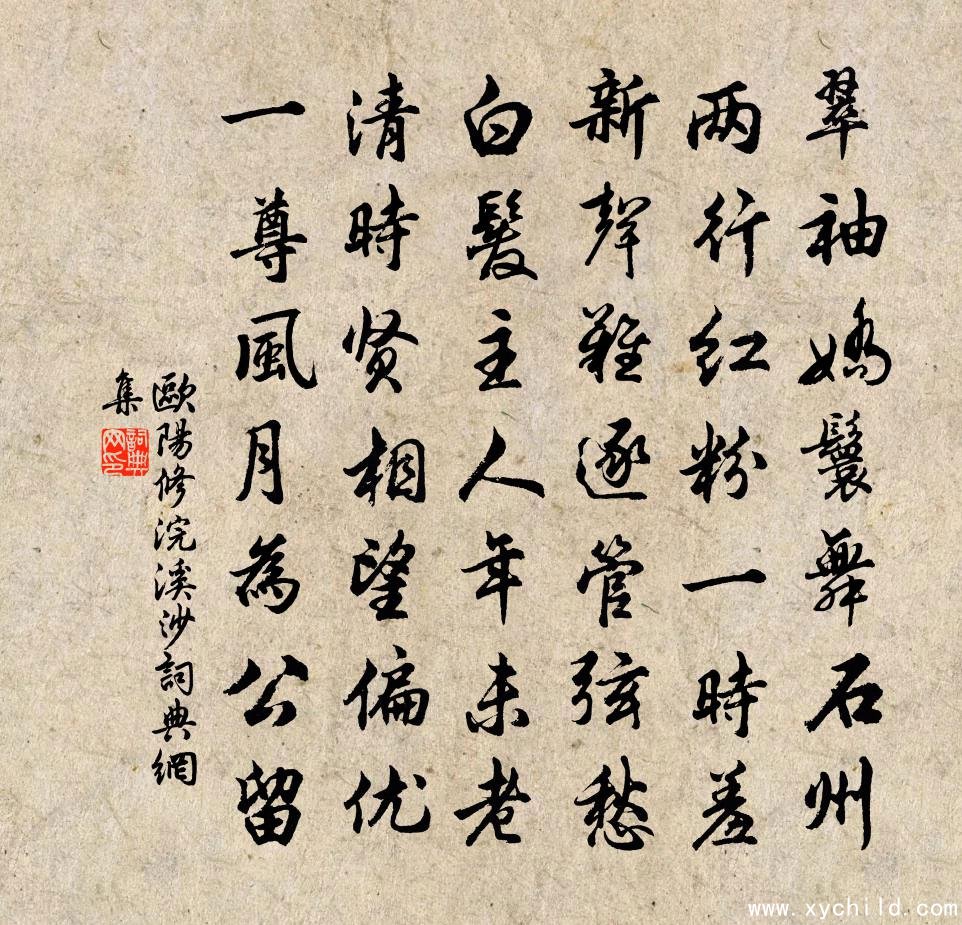 翠袖嬌鬟舞石州
两行红粉一時羞
新聲難逐管弦愁
白髮主人年未老
清時贤相望偏优
一尊風月為公留
歐陽修浣溪沙詞典網
集
詞典网印
www.xychild.com